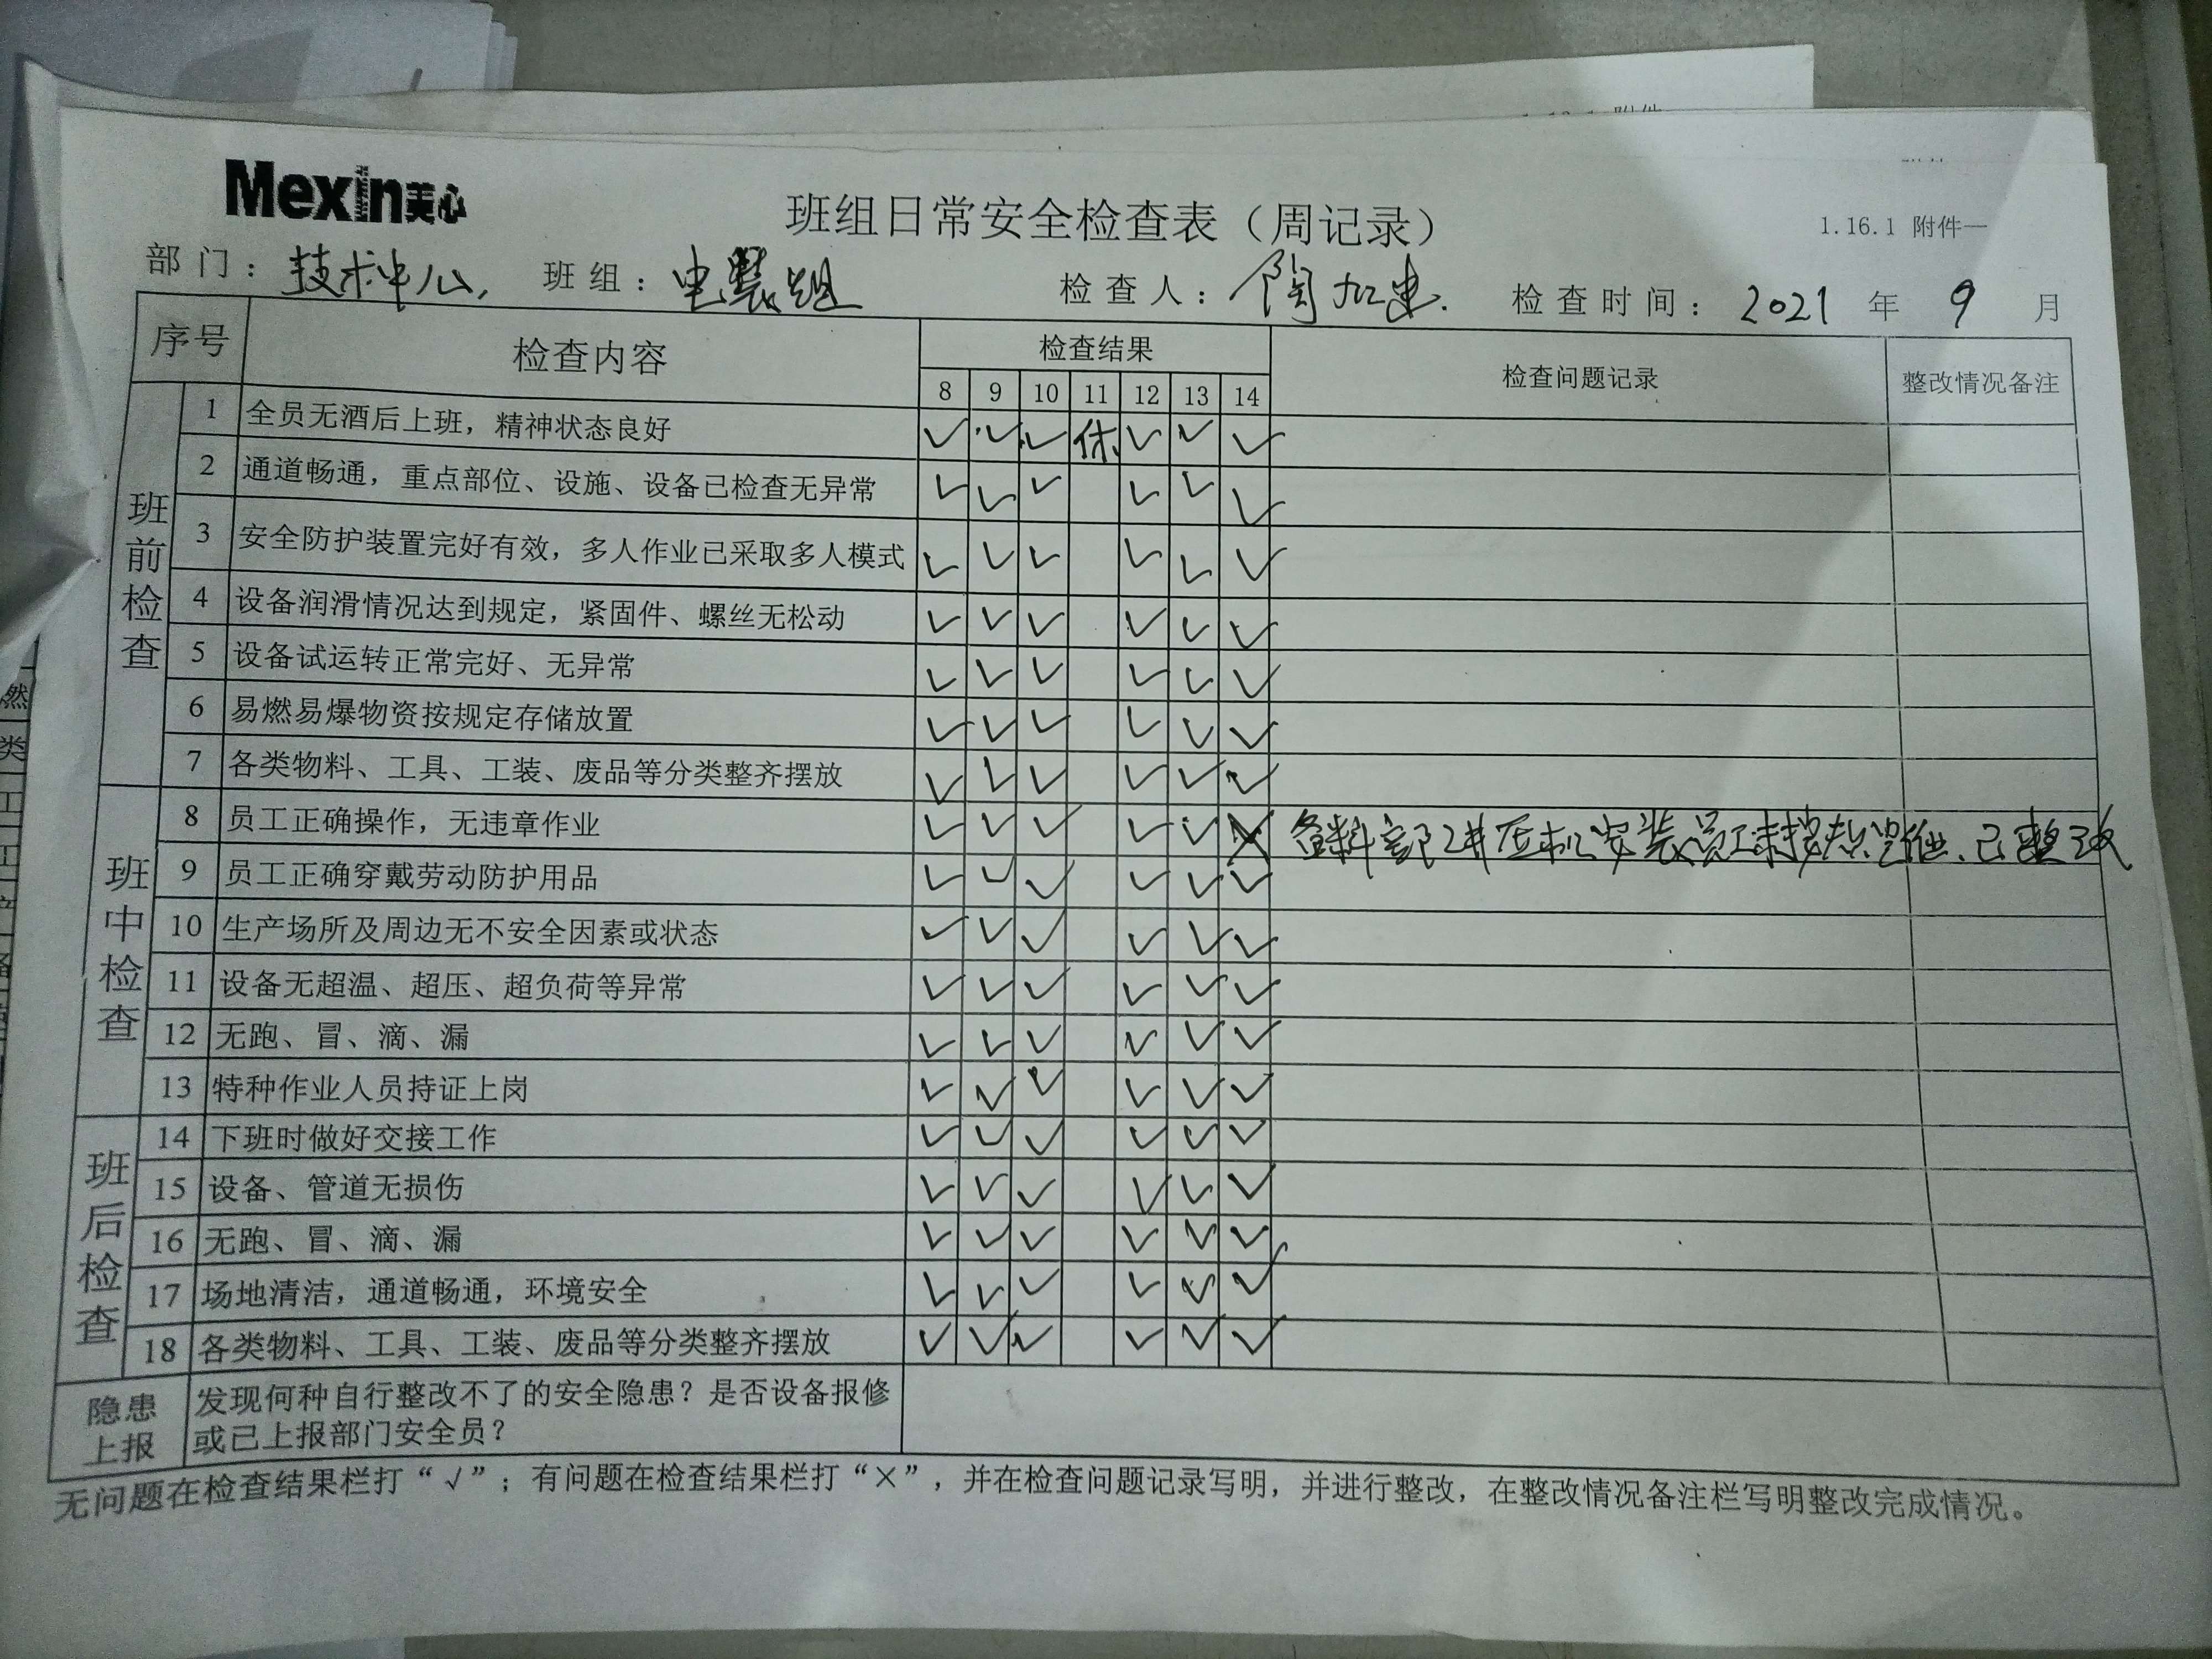 1.16.1 附件一
Mexin美心
班组日常安全检查表（周记录）
部门：技术中心 班组：电装组 检查人：陶加忠 检查时间：2021 年 9 月
序号 检查内容 检查结果 检查问题记录 整改情况备注
8 9 10 11 12 13 14
班前检查
1 全员无酒后上班，精神状态良好 ✓ ✓ ✓ 休 ✓ ✓ ✓
2 通道畅通，重点部位、设施、设备已检查无异常 ✓ ✓ ✓ ✓ ✓ ✓
3 安全防护装置完好有效，多人作业已采取多人模式 ✓ ✓ ✓ ✓ ✓ ✓
4 设备润滑情况达到规定，紧固件、螺丝无松动 ✓ ✓ ✓ ✓ ✓ ✓
5 设备试运转正常完好、无异常 ✓ ✓ ✓ ✓ ✓ ✓
6 易燃易爆物资按规定存储放置 ✓ ✓ ✓ ✓ ✓ ✓
7 各类物料、工具、工装、废品等分类整齐摆放 ✓ ✓ ✓ ✓ ✓ ✓
班中检查
8 员工正确操作，无违章作业 ✓ ✓ ✓ ✓ ✓ ✗ 备料部2#压机安装员工未 已整改
9 员工正确穿戴劳动防护用品 ✓ ✓ ✓ ✓ ✓ ✓
10 生产场所及周边无不安全因素或状态 ✓ ✓ ✓ ✓ ✓ ✓
11 设备无超温、超压、超负荷等异常 ✓ ✓ ✓ ✓ ✓ ✓
12 无跑、冒、滴、漏 ✓ ✓ ✓ ✓ ✓ ✓
13 特种作业人员持证上岗 ✓ ✓ ✓ ✓ ✓ ✓
班后检查
14 下班时做好交接工作 ✓ ✓ ✓ ✓ ✓ ✓
15 设备、管道无损伤 ✓ ✓ ✓ ✓ ✓ ✓
16 无跑、冒、滴、漏 ✓ ✓ ✓ ✓ ✓ ✓
17 场地清洁，通道畅通，环境安全 ✓ ✓ ✓ ✓ ✓ ✓
18 各类物料、工具、工装、废品等分类整齐摆放 ✓ ✓ ✓ ✓ ✓ ✓
隐患上报 发现何种自行整改不了的安全隐患？是否设备报修
或已上报部门安全员？
无问题在检查结果栏打“√”；有问题在检查结果栏打“×”，并在检查问题记录写明，并进行整改，在整改情况备注栏写明整改完成情况。